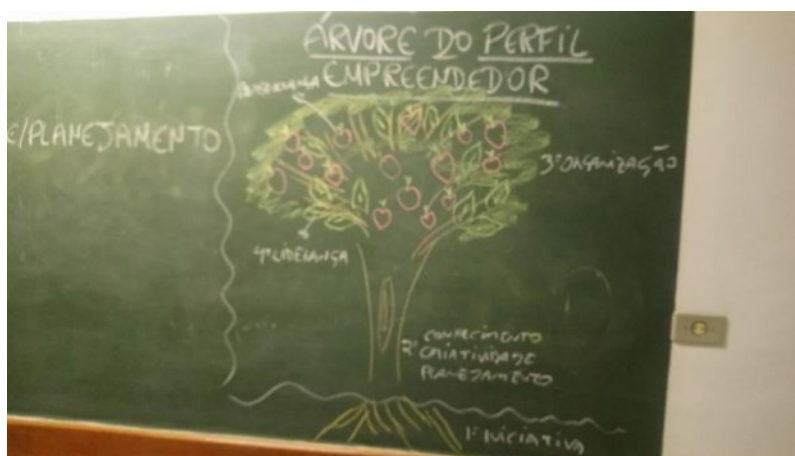 E/PLANEJAMENTO
ÁRVORE DO PERFIL
EMPREENDEDOR
3ª ORGANIZAÇÃO
4ª LIDERANÇA
CONHECIMENTO
2ª CRIATIVIDADE
PLANEJAMENTO
1ª INICIATIVA